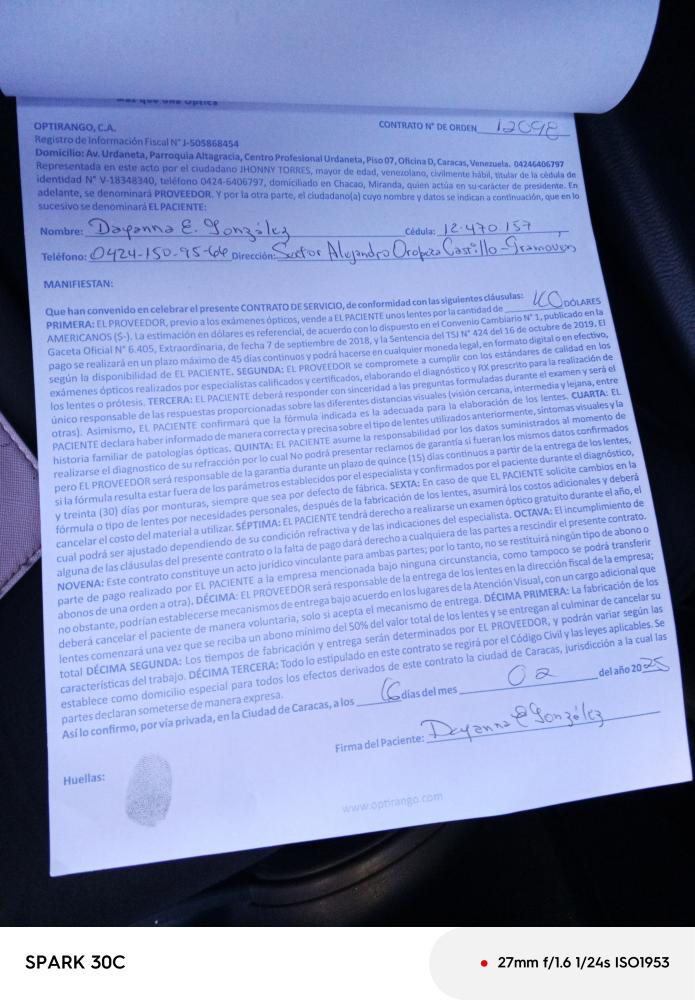 Más que una Óptica
OPTIRANGO, C.A.
CONTRATO N° DE ORDEN 12098
Registro de Información Fiscal N° J-505868454
Domicilio: Av. Urdaneta, Parroquia Altagracia, Centro Profesional Urdaneta, Piso 07, Oficina D, Caracas, Venezuela. 04246406797
Representada en este acto por el ciudadano JHONNY TORRES, mayor de edad, venezolano, civilmente hábil, titular de la cédula de
identidad N° V-18348340, teléfono 0424-6406797, domiciliado en Chacao, Miranda, quien actúa en su carácter de presidente. En
adelante, se denominará PROVEEDOR. Y por la otra parte, el ciudadano(a) cuyo nombre y datos se indican a continuación, que en lo
sucesivo se denominará EL PACIENTE:
Nombre: Dayanna E. González Cédula: 12.470.157
Teléfono: 0424-150-95-64 Dirección: Sector Alejandro Oropeza Castillo - Gramoven
MANIFIESTAN:
Que han convenido en celebrar el presente CONTRATO DE SERVICIO, de conformidad con las siguientes cláusulas:
PRIMERA: EL PROVEEDOR, previo a los exámenes ópticos, vende a EL PACIENTE unos lentes por la cantidad de DÓLARES
AMERICANOS ($-). La estimación en dólares es referencial, de acuerdo con lo dispuesto en el Convenio Cambiario N° 1, publicado en la
Gaceta Oficial N° 6.405, Extraordinaria, de fecha 7 de septiembre de 2018, y la Sentencia del TSJ N° 424 del 16 de octubre de 2019. El
pago se realizará en un plazo máximo de 45 días continuos y podrá hacerse en cualquier moneda legal, en formato digital o en efectivo,
según la disponibilidad de EL PACIENTE. SEGUNDA: EL PROVEEDOR se compromete a cumplir con los estándares de calidad en los
exámenes ópticos realizados por especialistas calificados y certificados, elaborando el diagnóstico y RX prescrito para la realización de
los lentes o prótesis. TERCERA: EL PACIENTE deberá responder con sinceridad a las preguntas formuladas durante el examen y será el
único responsable de las respuestas proporcionadas sobre las diferentes distancias visuales (visión cercana, intermedia y lejana, entre
otras). Asimismo, EL PACIENTE confirmará que la fórmula indicada es la adecuada para la elaboración de los lentes. CUARTA: EL
PACIENTE declara haber informado de manera correcta y precisa sobre el tipo de lentes utilizados anteriormente, síntomas visuales y la
historia familiar de patologías ópticas. QUINTA: EL PACIENTE asume la responsabilidad por los datos suministrados al momento de
realizarse el diagnostico de su refracción por lo cual No podrá presentar reclamos de garantía si fueran los mismos datos confirmados
pero EL PROVEEDOR será responsable de la garantía durante un plazo de quince (15) días continuos a partir de la entrega de los lentes,
si la fórmula resulta estar fuera de los parámetros establecidos por el especialista y confirmados por el paciente durante el diagnóstico,
y treinta (30) días por monturas, siempre que sea por defecto de fábrica. SEXTA: En caso de que EL PACIENTE solicite cambios en la
fórmula o tipo de lentes por necesidades personales, después de la fabricación de los lentes, asumirá los costos adicionales y deberá
cancelar el costo del material a utilizar. SÉPTIMA: EL PACIENTE tendrá derecho a realizarse un examen óptico gratuito durante el año, el
cual podrá ser ajustado dependiendo de su condición refractiva y de las indicaciones del especialista. OCTAVA: El incumplimiento de
alguna de las cláusulas del presente contrato o la falta de pago dará derecho a cualquiera de las partes a rescindir el presente contrato.
NOVENA: Este contrato constituye un acto jurídico vinculante para ambas partes; por lo tanto, no se restituirá ningún tipo de abono o
parte de pago realizado por EL PACIENTE a la empresa mencionada bajo ninguna circunstancia, como tampoco se podrá transferir
abonos de una orden a otra). DÉCIMA: EL PROVEEDOR será responsable de la entrega de los lentes en la dirección fiscal de la empresa;
no obstante, podrían establecerse mecanismos de entrega bajo acuerdo en los lugares de la Atención Visual, con un cargo adicional que
deberá cancelar el paciente de manera voluntaria, solo si acepta el mecanismo de entrega. DÉCIMA PRIMERA: La fabricación de los
lentes comenzará una vez que se reciba un abono mínimo del 50% del valor total de los lentes y se entregan al culminar de cancelar su
total DÉCIMA SEGUNDA: Los tiempos de fabricación y entrega serán determinados por EL PROVEEDOR, y podrán variar según las
características del trabajo. DÉCIMA TERCERA: Todo lo estipulado en este contrato se regirá por el Código Civil y las leyes aplicables. Se
establece como domicilio especial para todos los efectos derivados de este contrato la ciudad de Caracas, jurisdicción a la cual las
partes declaran someterse de manera expresa.
Así lo confirmo, por vía privada, en la Ciudad de Caracas, a los 16 días del mes 02 del año 2025
Firma del Paciente: Dayanna E González
Huellas:
www.optirango.com
SPARK 30C
27mm f/1.6 1/24s ISO1953